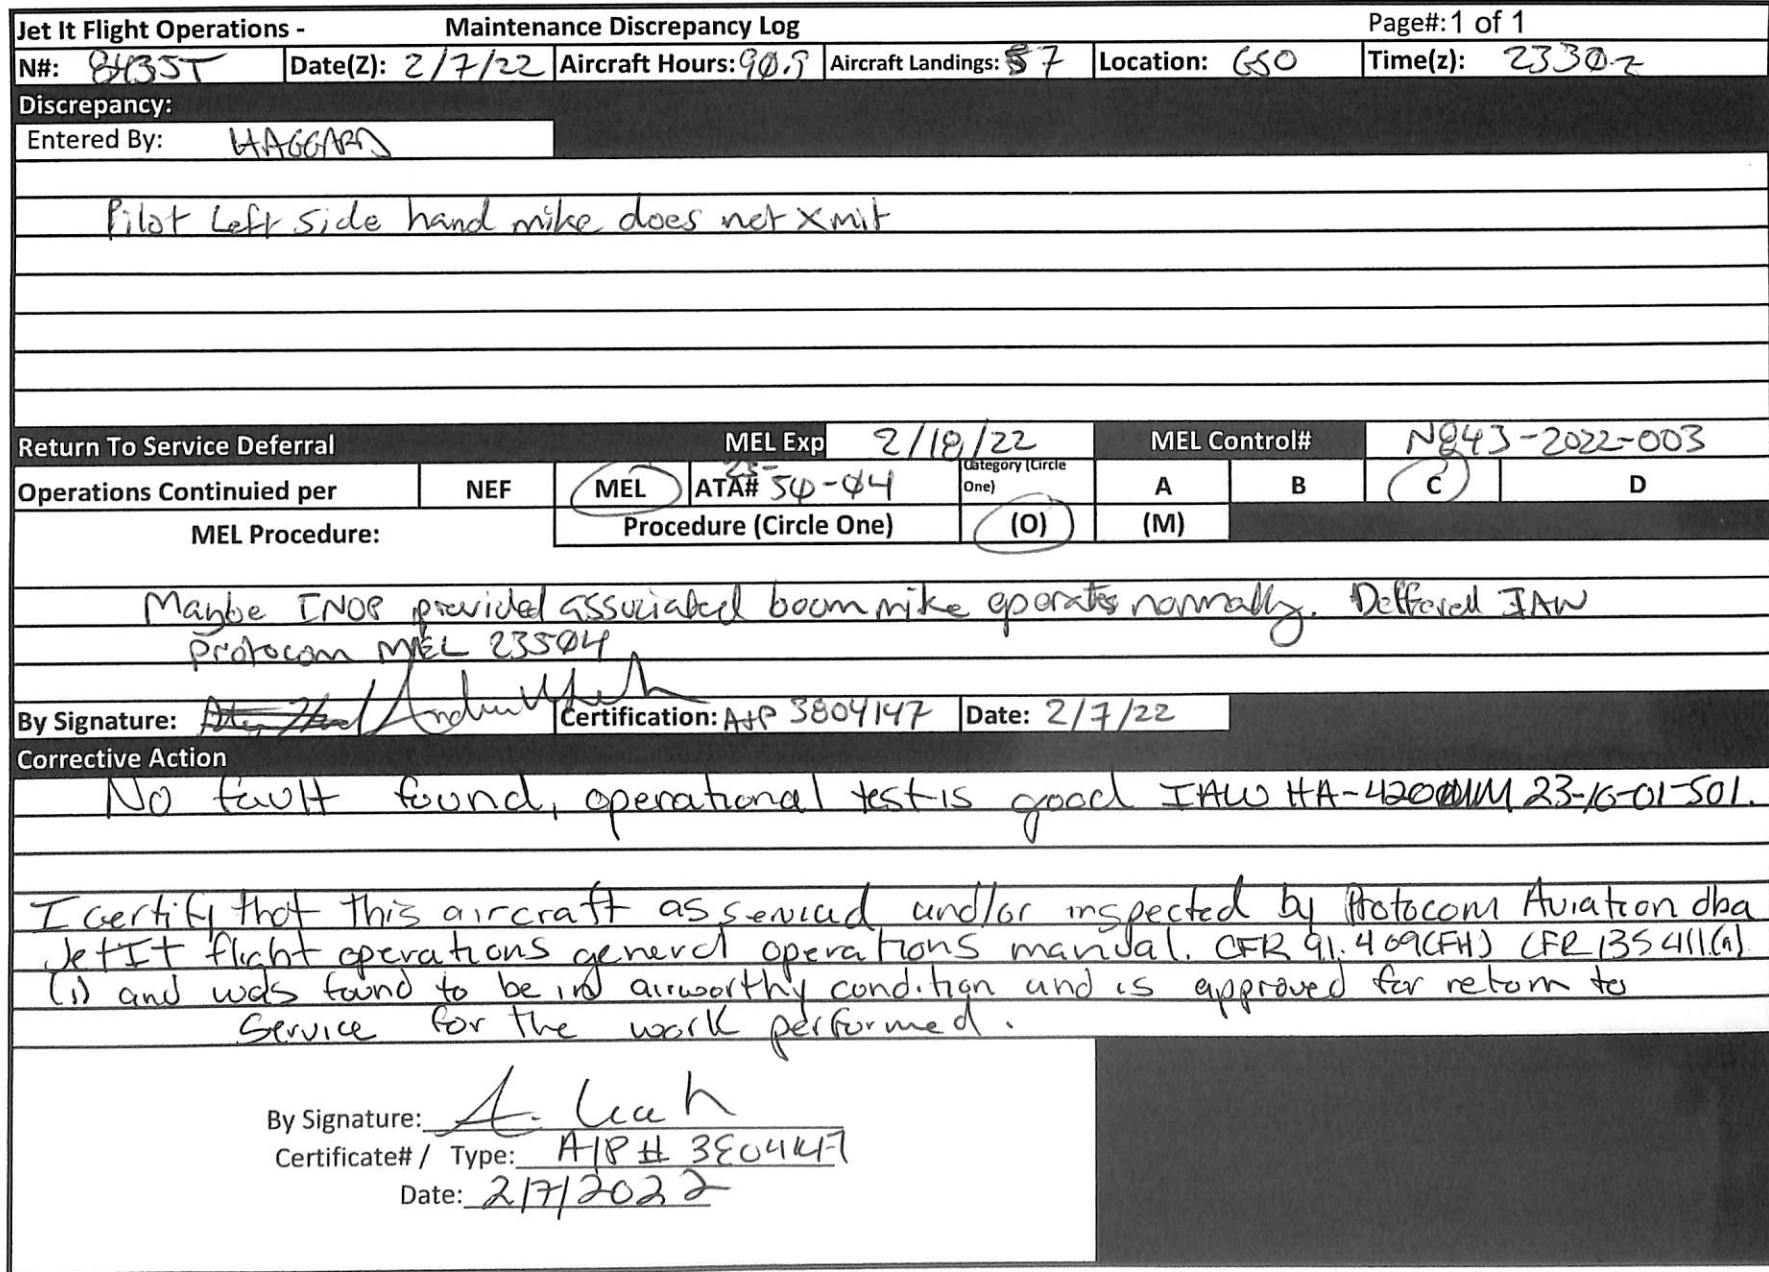 Jet It Flight Operations - Maintenance Discrepancy Log Page#: 1 of 1
N#: 843JT Date(Z): 2/7/22 Aircraft Hours: 90.9 Aircraft Landings: 87 Location: GSO Time(z): 2330z
Discrepancy:
Entered By: HAGGARD
Pilot Left side hand mike does not Xmit
Return To Service Deferral MEL Exp 2/18/22 MEL Control# N843-2022-003
Operations Continuied per NEF MEL ATA# 23-50-04 Category (Circle One) A B C D
MEL Procedure: Procedure (Circle One) (O) (M)
Maybe INOP provided associated boom mike operates normally. Deffered IAW
Protocom MEL 23504
By Signature: Certification: A+P 3804147 Date: 2/7/22
Corrective Action
No fault found, operational test is good IAW HA-420 MM 23-10-01-501.
I certify that this aircraft as serviced and/or inspected by Protocom Aviation dba
JetIt flight operations general operations manual. CFR 91.409(FH) CFR 135 411.(a)
(1) and was found to be in airworthy condition and is approved for return to
Service for the work performed.
By Signature:
Certificate# / Type: A/P # 3804147
Date: 2/7/2022